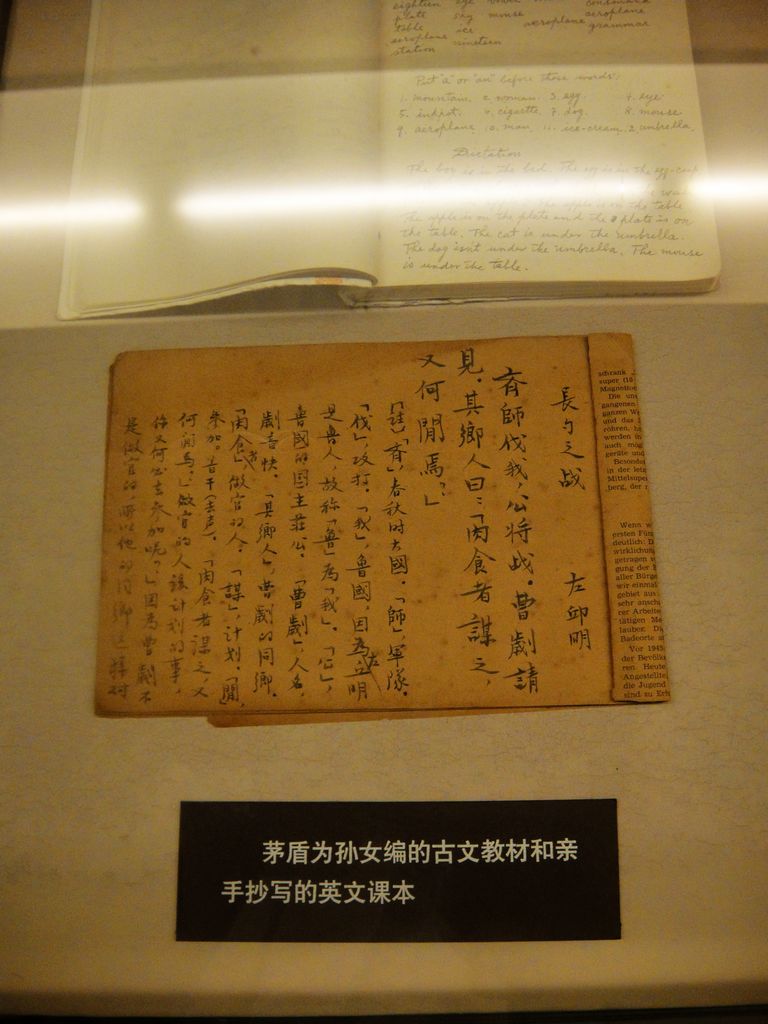 eighteen eye
plate sky mouse aeroplane
table ice aeroplane grammar
aeroplane nineteen
station
Put "a" or "an" before these words:
1. mountain. 2. woman. 3. egg. 4. eye
5. inkpot. 6. cigarette. 7. dog. 8. mouse
9. aeroplane 10. man. 11. ice-cream. 12. umbrella.
Dictation
The box is in the bed. The egg is in the egg-cup
the apple is on the table
the apple is on the plate and the plate is on
the table. The cat is under the umbrella.
The dog isn't under the umbrella. The mouse
is under the table.
長勺之战 左邱明
齐師伐我,公将战。曹劌請
見。其鄉人曰:「肉食者謀之,
又何閒焉?」
「註」「齐」,春秋时大國。「師」軍隊。
「伐」,攻打。「我」,魯國,因为左丘明
是魯人,故称「魯」为「我」。「公」,
魯國的国主莊公。「曹劌」,人名,
劌音快。「其鄉人」,曹劌的同鄉。
「肉食者」,做官的人。「謀」,计划。「閒」,
参加。音干(去声)。「肉食者谋之,又
何閒焉?」做官的人该计划的事,
你又何必去参加呢?」因为曹劌不
是做官的,所以他的同鄉这样对
schrank
super (10
Magnetton
Die un
gangenen
ganzen W
und das
röhren, h
werden in
auch mög
geräte und
Besonde
in der letz
Mittelsuper
berg, der
Wenn w
ersten Fün
deutlich: D
wirklichun
getragen v
gung der
aller Bürge
wir einmal
gebiet aus
sehr ansch
rer Arbeite
tätigen Me
lauber. Di
Badeorte a
Vor 1945
der Bevölke
ren. Heute
Angestellte
die Jugend
sind zu Erh
茅盾为孙女编的古文教材和亲
手抄写的英文课本